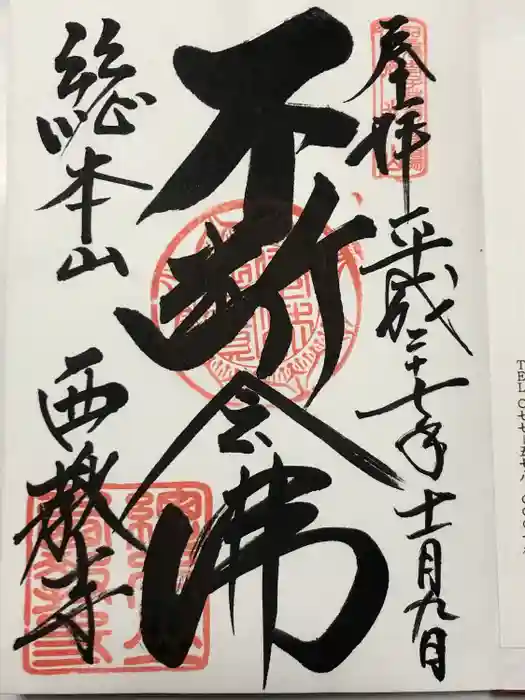 奉拝 平成二十七年十一月九日
不断念佛
総本山 西教寺